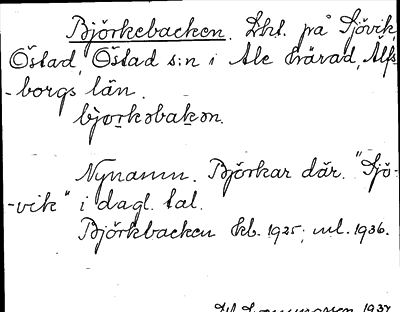 Björkebacken. Lht. på Sjövik,
Östad, Östad s:n i Ale härad, Älfs-
-borgs län.
bjorkəbakən.
Nynamn. Björkar där. "Sjö-
-vik" i dagl. tal.
Björkbacken kb. 1925; ml. 1936.
1937